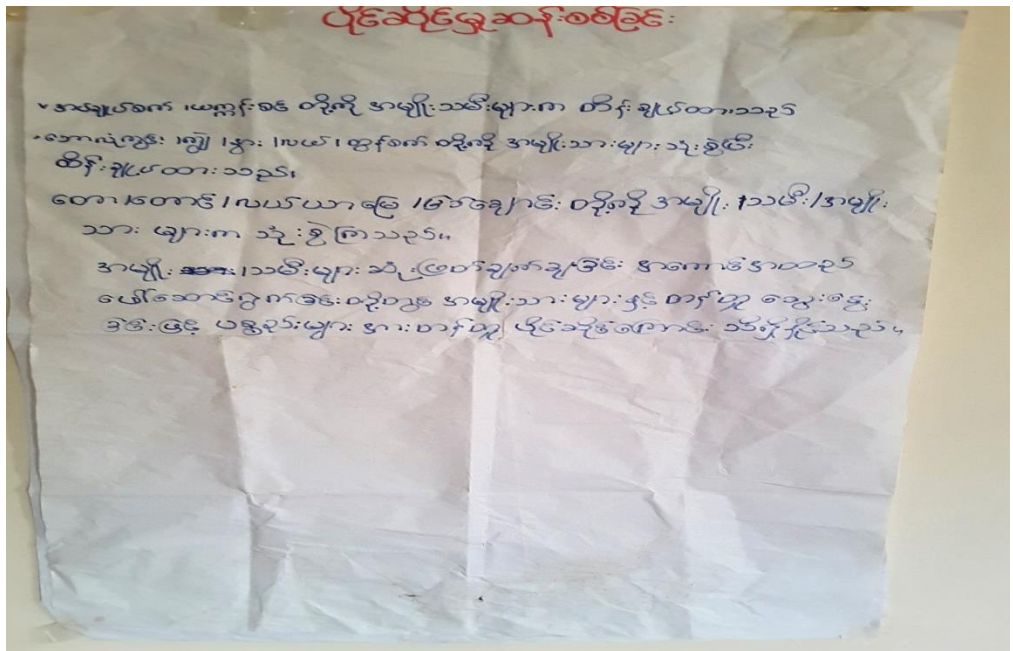 ပိုင်ဆိုင်မှုဆန်းစစ်ခြင်း
အပ်ချုပ်စက်၊ ယက္ကန်းစင် တို့ကို အမျိုးသမီးများက ထိန်းချုပ်ထားသည်
ဘောလုံးကွင်း၊ ကျွဲ၊ နွား၊ လယ်၊ ထွန်စက် တို့ကို အမျိုးသားများ သုံးစွဲပြီး
ထိန်းချုပ်ထားသည်။
တော၊ တောင်၊ လယ်ယာမြေ၊ မြစ်ချောင်း တို့ကို အမျိုး၊သမီး၊ အမျိုး
သားများက သုံးစွဲကြသည်။
အမျိုး၊သမီးများ ဆုံးဖြတ်ချက်ချခြင်း အကောင်အထည်
ဖေါ်ဆောင်ရွက်ခြင်းတို့တွင် အမျိုးသားများနှင့် တန်တူ ဆွေးနွေး
ခြင်းဖြင့် ပစ္စည်းများ အားတန်တူ ပိုင်ဆိုင်ကြောင်း သိရှိနိုင်သည်။